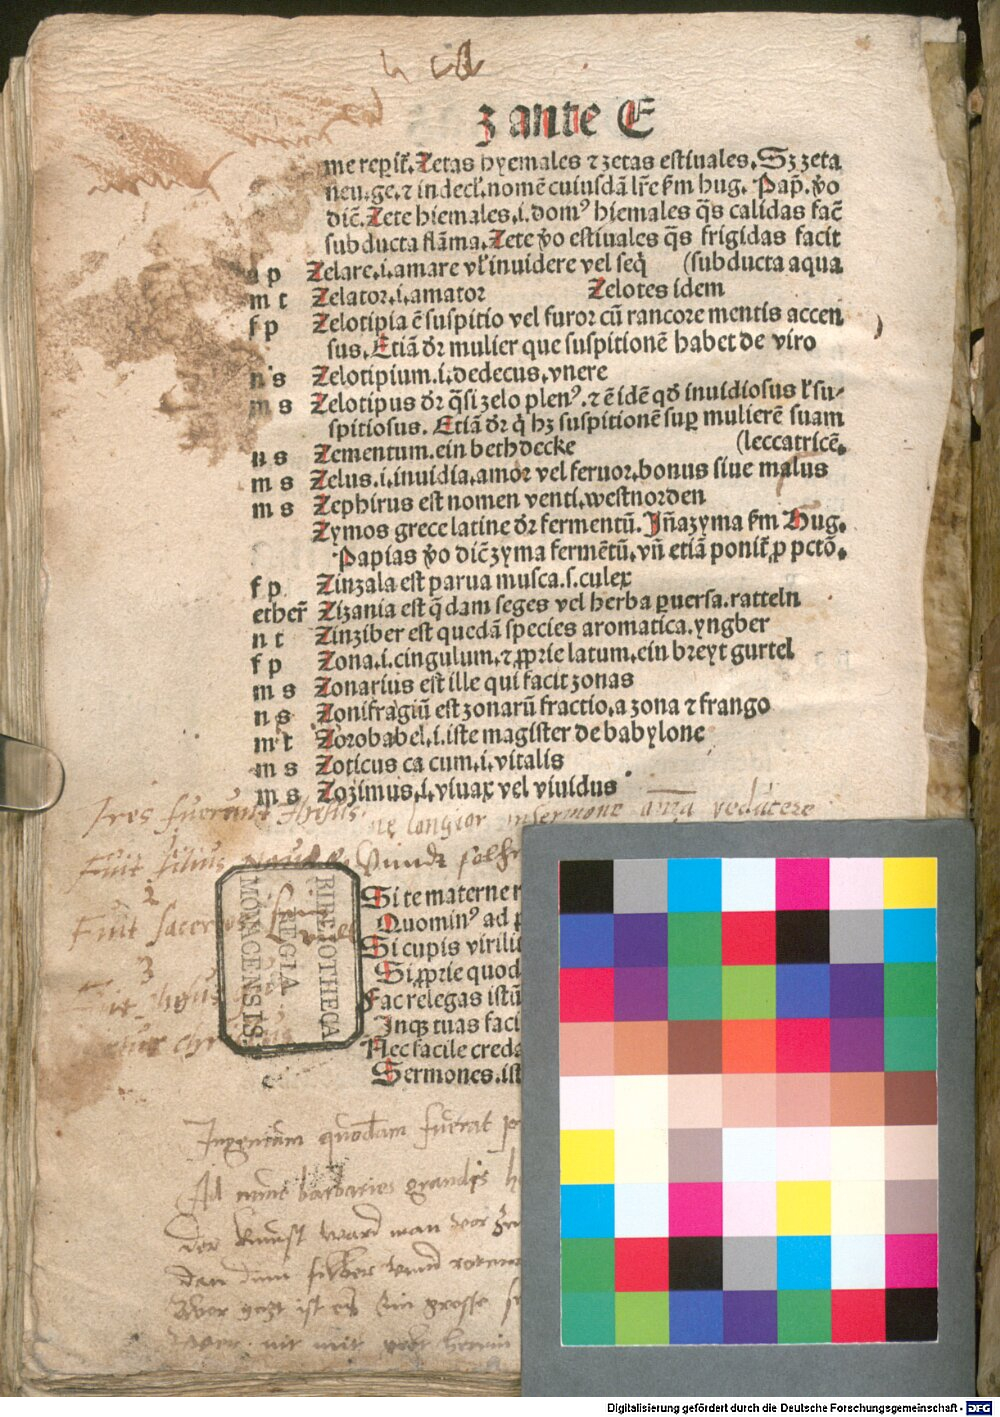 Z ante E
me reperit᷑. Zetas hyemales ⁊ zetas estiuales. Sꝫ zeta
neu. ge. ⁊ indecl'. nomē cuiusdā lr̄e ẜm hug. Pap̄. v̊o
dic̄. Zete hiemales .i. domꝰ hiemales q̄s calidas fac̄
subducta flāma. Zete v̊o estiuales q̄s frigidas facit
a p Zelare .i. amare vl' inuidere vel seq̄ (subducta aqua
m t Zelator .i. amator Zelotes idem
f p Zelotipia ē suspitio vel furor cū rancore mentis accen
sus. Etiā dr̄ mulier que suspitionē habet de viro
n s Zelotipium .i. dedecus. vnere
m s Zelotipus dr̄ q̄si zelo plenꝰ. ⁊ ē idē qd̄ inuidiosus l' su⸗
spitiosus. Etiā dr̄ q̇ hꝫ suspitionē suꝑ mulierē suam
n s Zementum. ein bethdecke (leccatricē.
m s Zelus .i. inuidia. amor vel feruor. bonus siue malus
m s Zephirus est nomen venti. westnorden
Zymos grece latine dr̄ fermentū. Jn̄ azyma ẜm Hug.
Papias v̊o dic̄ zyma fermētū. vn̄ etiā ponit᷑ ꝓ pctō.
f p Zinzala est parua musca .s. culex
ether̄ Zizania est q̄dam seges vel herba ꝑuersa. ratteln
n t Zinziber est quedā species aromatica. yngber
f p Zona .i. cingulum. ⁊ ꝓprie latum. ein breyt gurtel
m s Zonarius est ille qui facit zonas
n s Zonifragiū est zonarū fractio. a zona ⁊ frango
m t Zorobabel .i. iste magister de babylone
m s Zoticus ca cum .i. vitalis
m s Zozimus .i. viuax vel viuidus
Tres fuerunt
ne longior in sermone reducere
Fuit filius
Si te materne
Quominꝰ ad
2
Fuit
Si cupis virili
Si ꝓprie quod
3
Fac relegas istū
Jnqꝫ tuas faci
Nec facile creda
Sermones. ist
BIBLIOTHECA
REGIA
MONACENSIS.
quodam fuerat
Ad barbaries grandis
Der kunst ward man vor
Dan dum silber vnd
ist grosse
nit mit
Digitalisierung gefördert durch die Deutsche Forschungsgemeinschaft - DFG